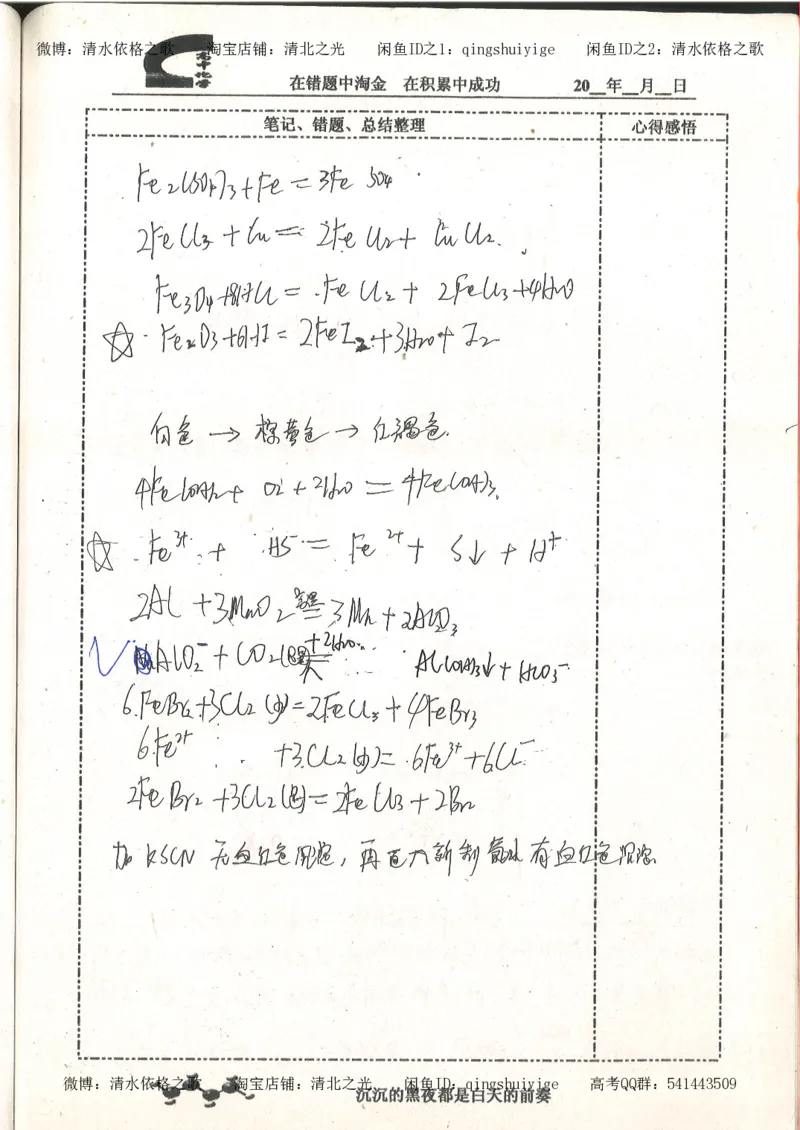 微博：清水依格之歌 淘宝店铺：清北之光 闲鱼ID之1：qingshuiyige 闲鱼ID之2：清水依格之歌
高中化学
在错题中淘金 在积累中成功 20__年__月__日
笔记、错题、总结整理 心得感悟
Fe₂(SO₄)₃+Fe=3FeSO₄
2FeCl₃+Cu=2FeCl₂+CuCl₂.
Fe₃O₄+8HCl=FeCl₂+2FeCl₃+4H₂O
☆·Fe₂O₃+6HI=2FeI₂+3H₂O+I₂
白色→棕黄色→红褐色.
4Fe(OH)₂+O₂+2H₂O=4Fe(OH)₃.
☆ Fe³⁺+HS⁻=Fe²⁺+S↓+H⁺
2Al+3MnO₂ 高温= 3Mn+2Al₂O₃
√ AlO₂⁻+CO₂(足)+2H₂O= Al(OH)₃↓+HCO₃⁻
6FeBr₂+3Cl₂(少)=2FeCl₃+4FeBr₃
6Fe²⁺ +3Cl₂(少)=6Fe³⁺+6Cl⁻
2FeBr₂+3Cl₂(足)=2FeCl₃+2Br₂
加KSCN无血红色现象，再加入新制氯水有血红色现象.
微博：清水依格之歌 淘宝店铺：清北之光 闲鱼ID：qingshuiyige 高考QQ群：541443509
沉沉的黑夜都是白天的前奏